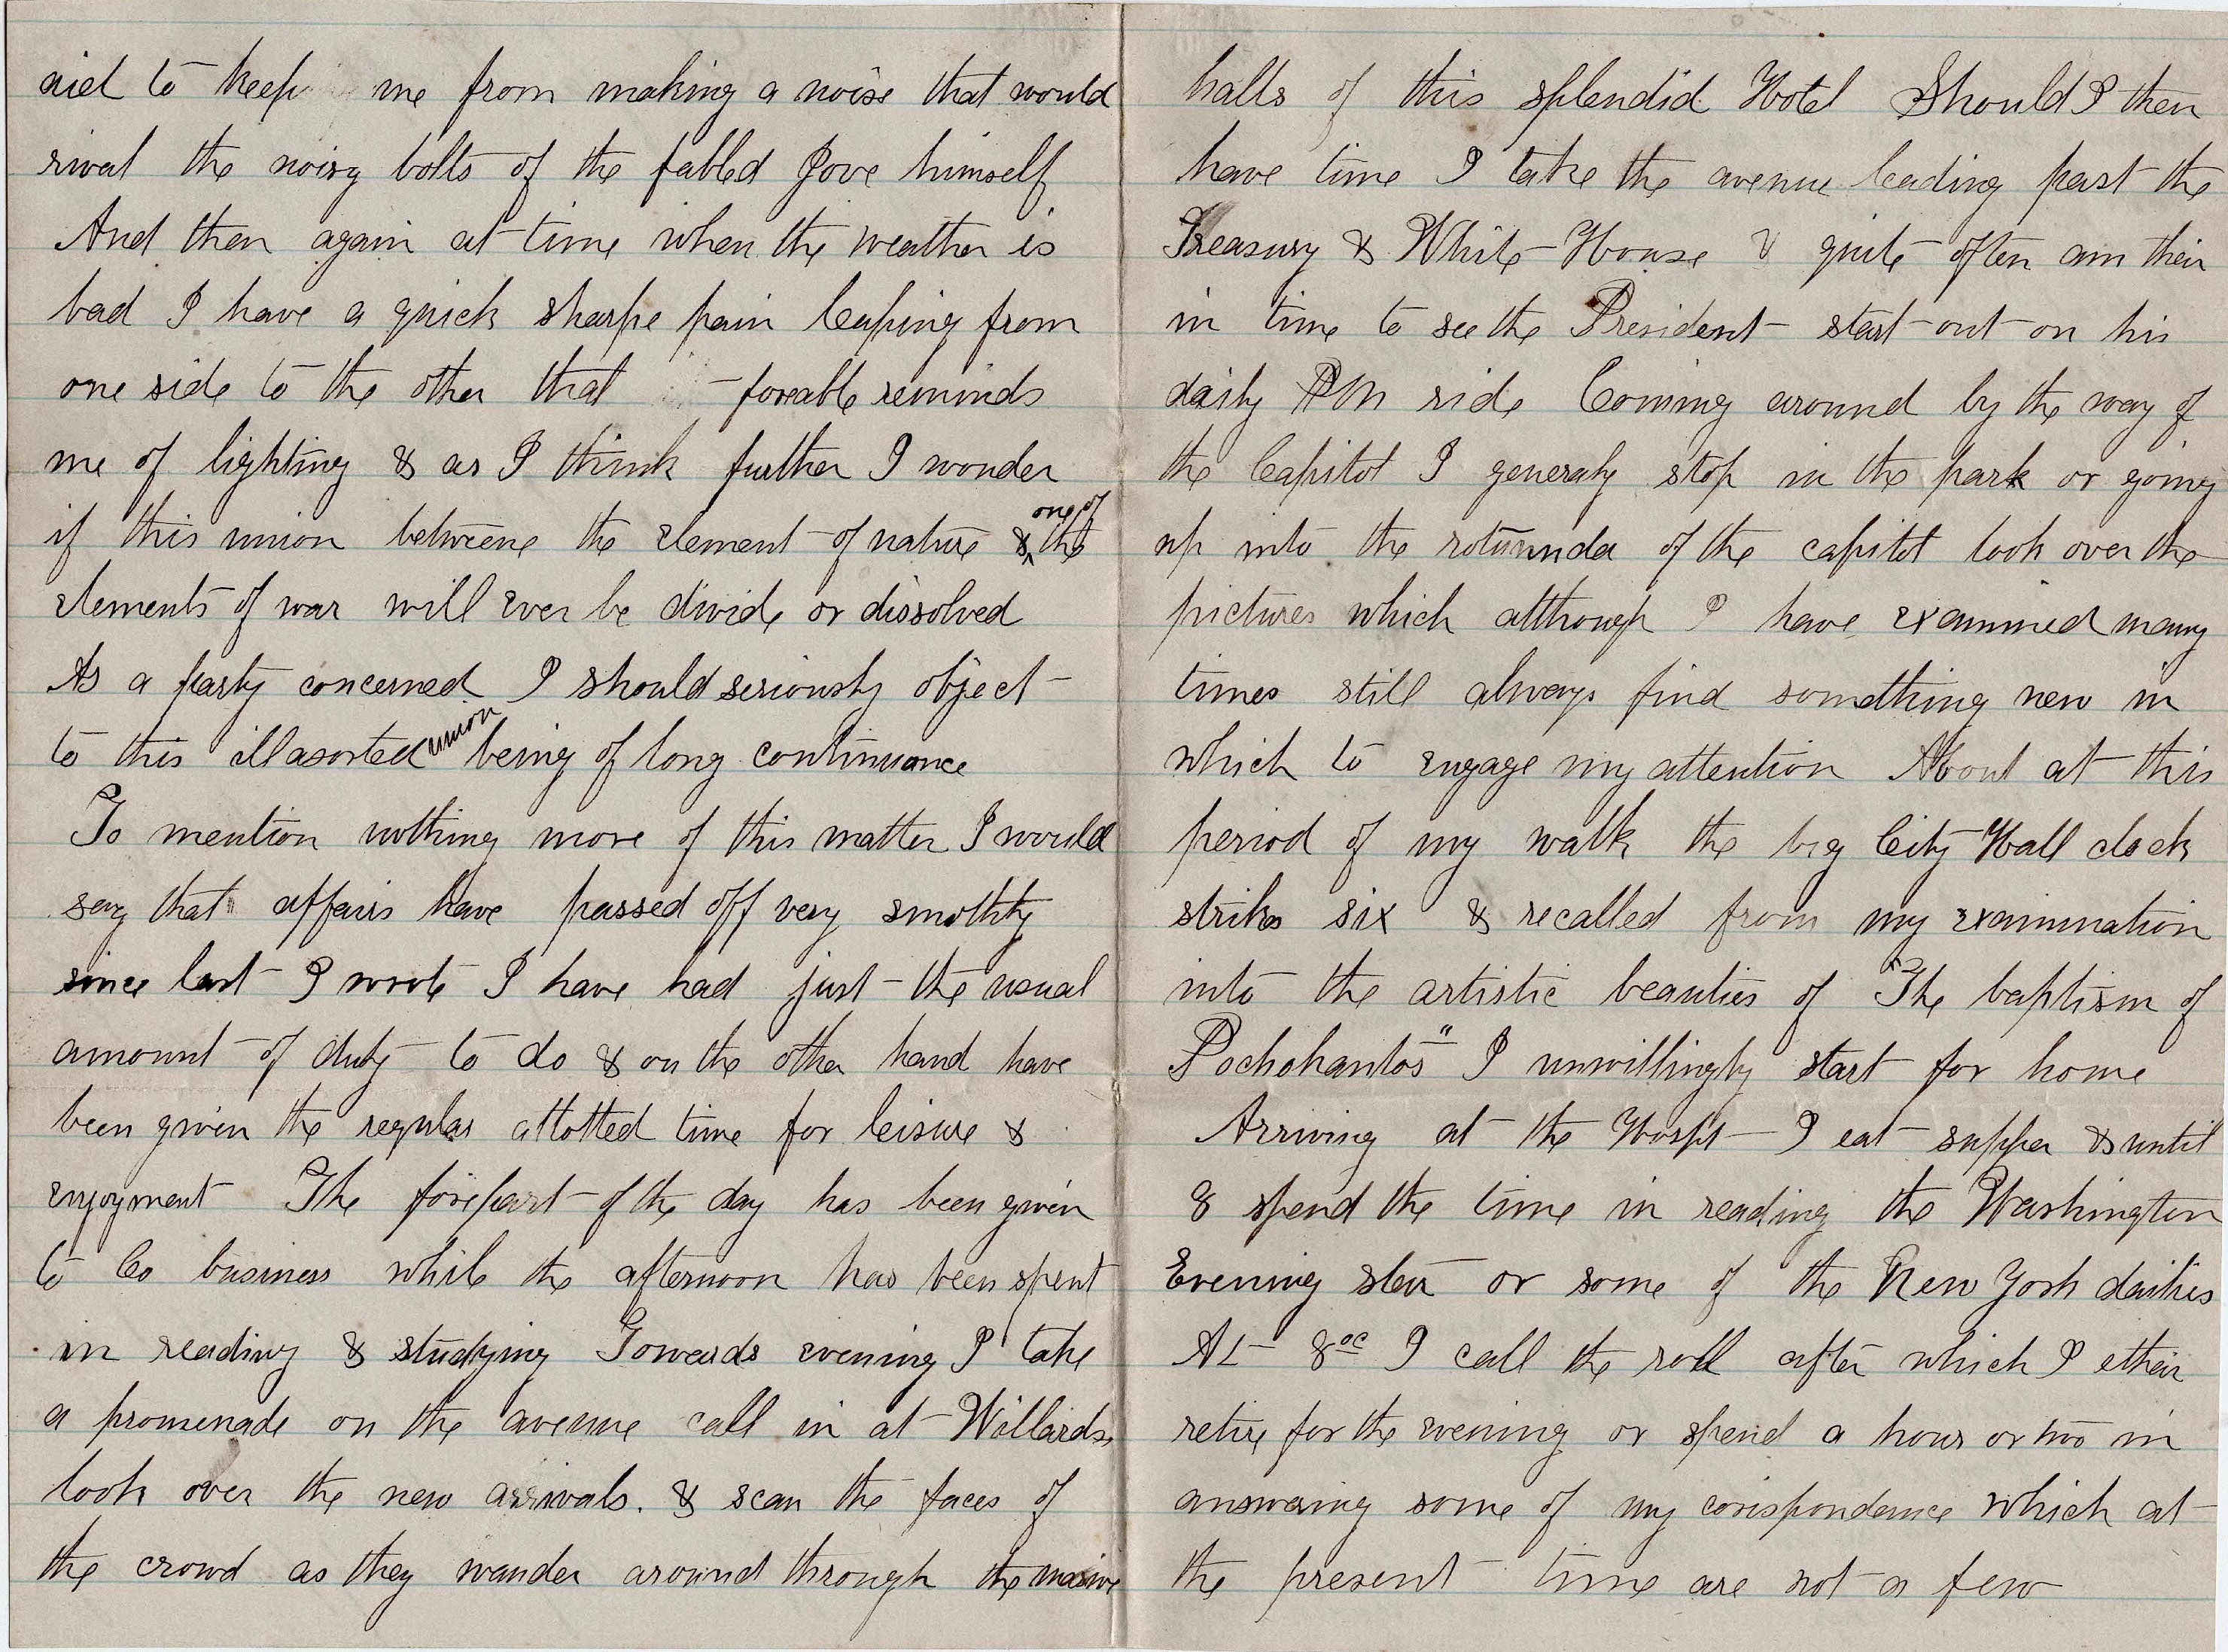 aid to keep me from making a noise that would
rival the noisy bolts of the fabled Jove himself
And then again at time when the weather is
bad I have a quick sharpe pain leaping from
one side to the other that foreable reminds
me of lighting & as I think further I wonder
if this union betweene the element of nature & one of the
elements of war will ever be divide or dissolved
As a party concerned I should seriously object
to this illasorted union being of long continuance
To mention nothing more of this matter I would
say that affairs have passed off very smothly
since last I wrote I have had just the usual
amount of duty to do & on the other hand have
been given the regular allotted time for leisure &
enjoyment The forepart of the day has been given
to Co business while the afternoon has been spent
in reading & studying Towards evening I take
a promenade on the avenue call in at Willards,
look over the new arrivals. & scan the faces of
the crowd as they wander around through the
halls of this splendid Hotel Should I then
have time I take the avenue leading past the
Treasury & White House & quite often am their
in time to see the President start out on his
daily PM ride Coming around by the way of
the Capitol I generaly stop in the park or going
up into the rotunnda of the capitol look over the
pictures which although I have examined many
times still always find something new in
which to engage my attention About at this
period of my walk the big City Hall clock
strikes six & recalled from my examination
into the artistic beauties of "The baptism of
Pochohantos" I unwillingly start for home
Arriving at the Hospt I eat supper & until
8 spend the time in reading the Washington
Evening star or some of the New York dailies
At 8 oc I call the roll after which I etheir
retire for the evening or spend a hour or two in
answering some of my corispondence which at
the present time are not a few